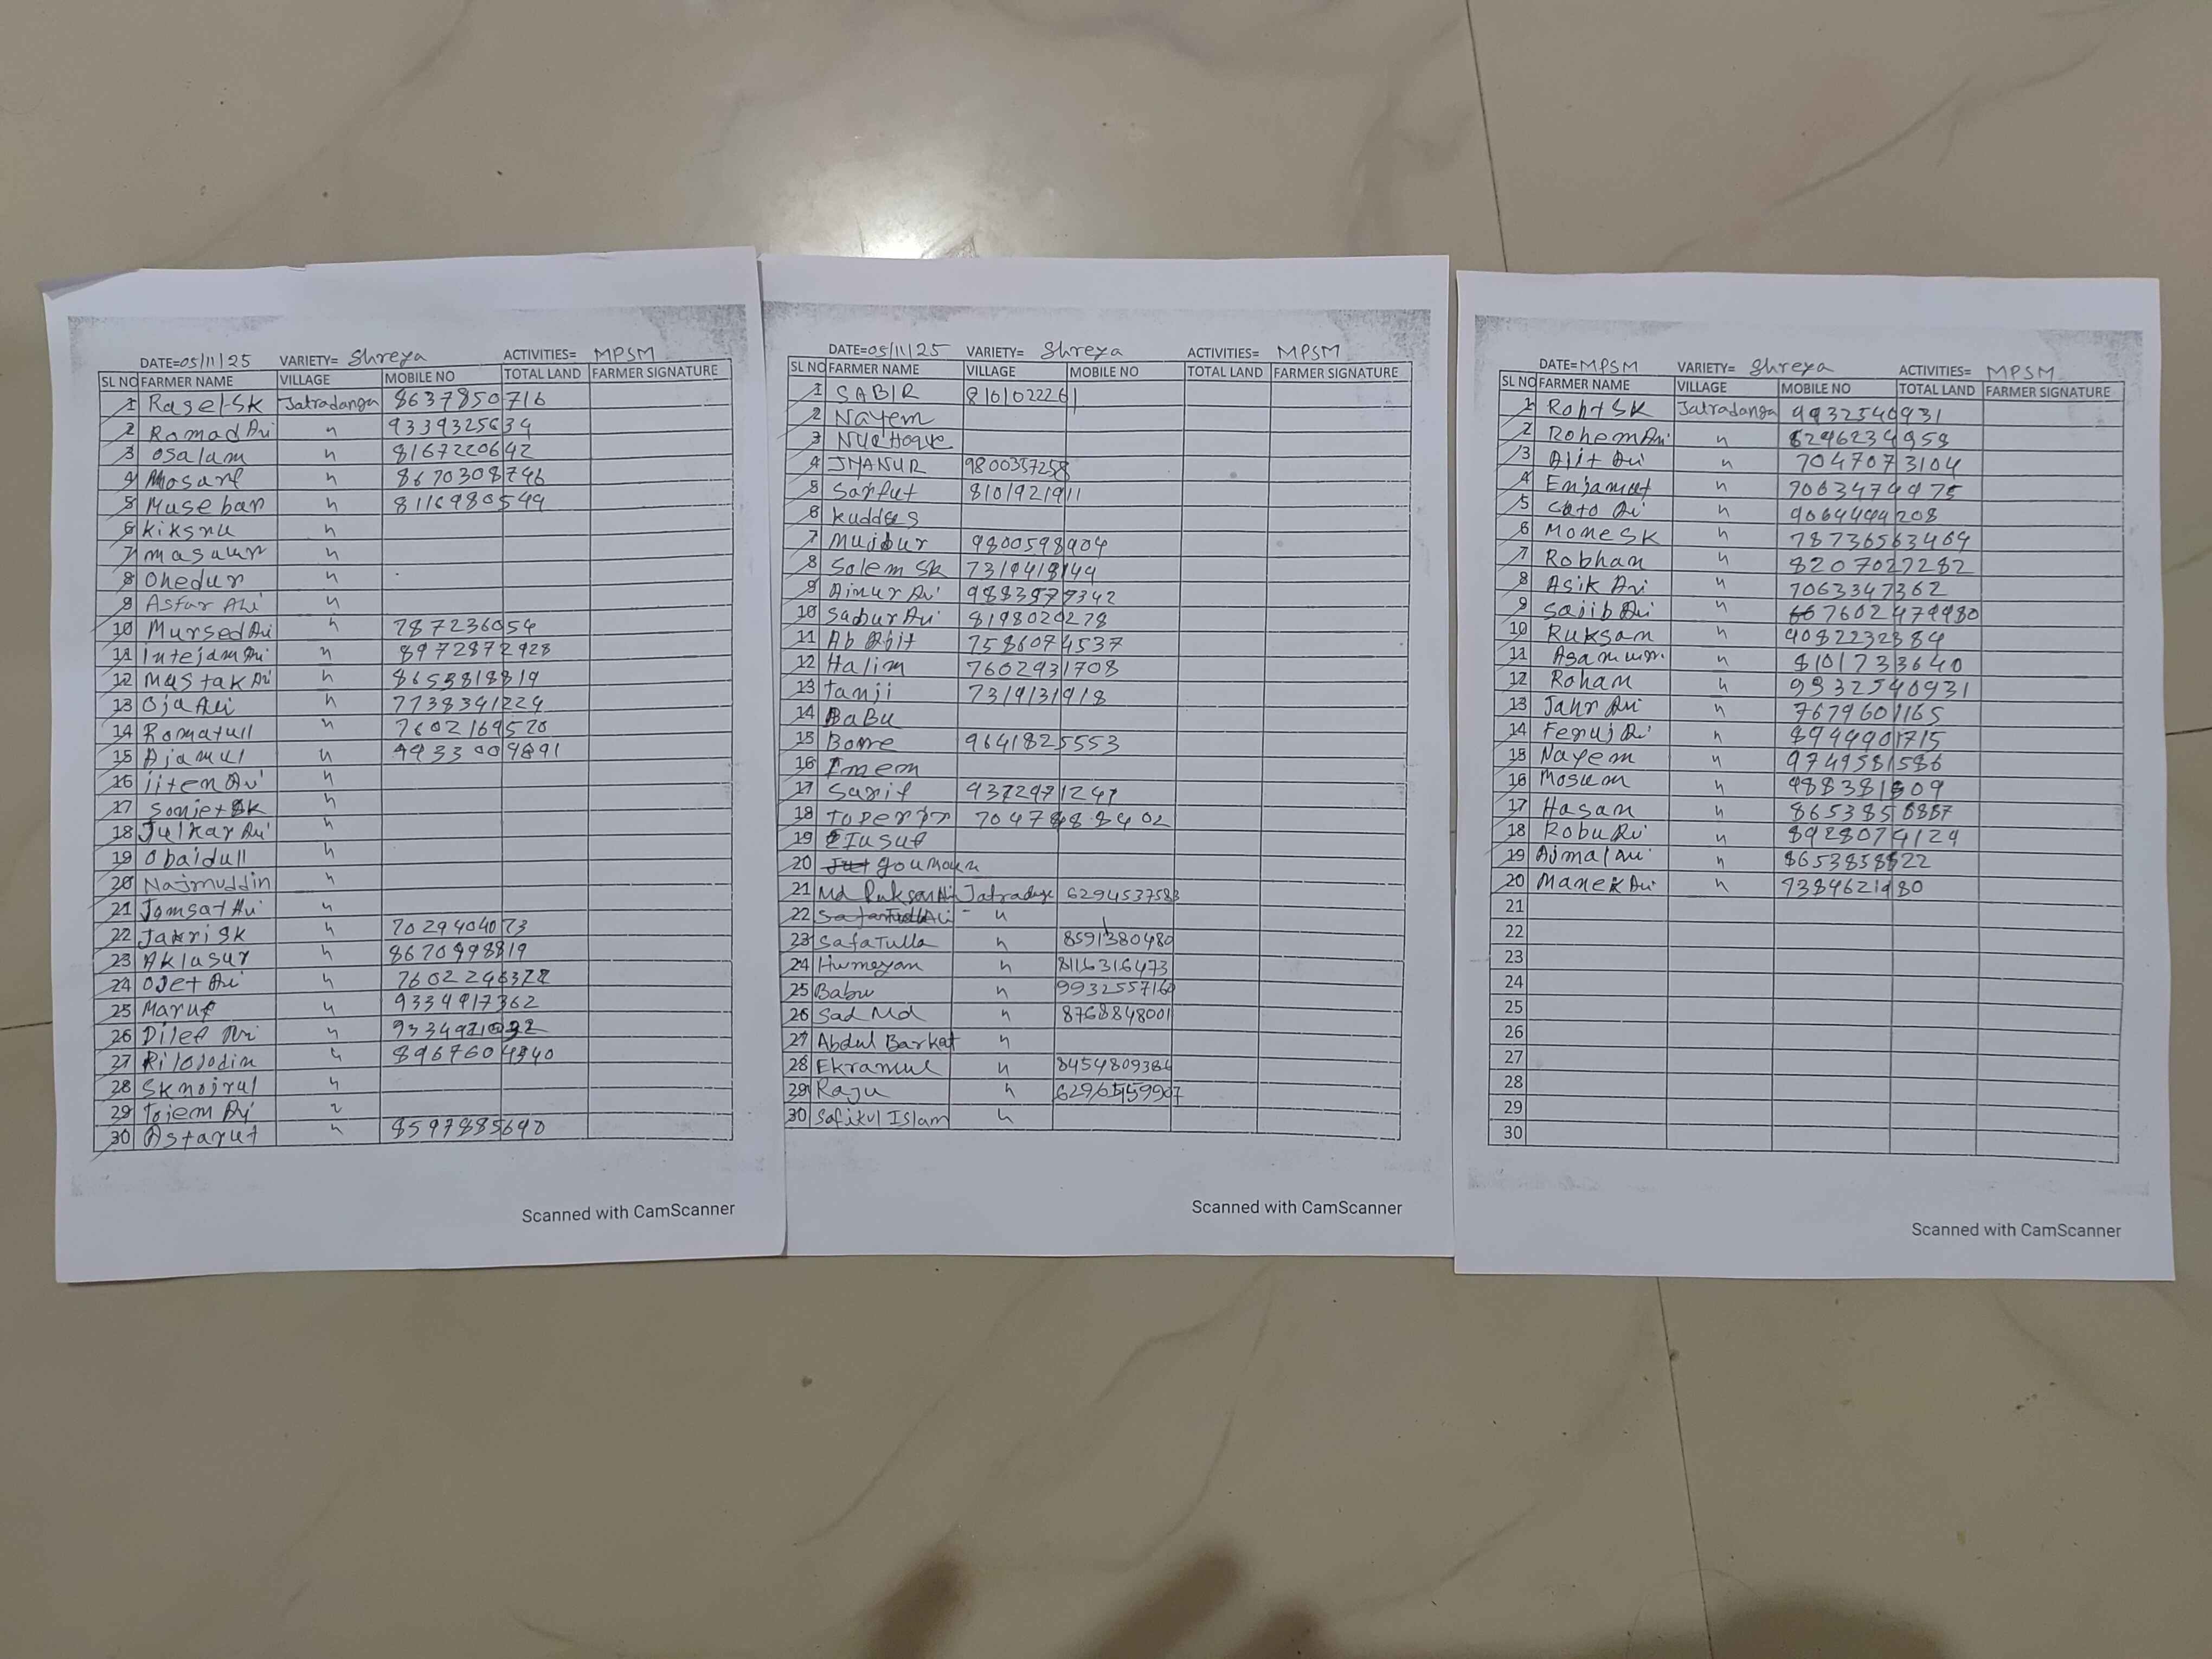 DATE=05/11/25 VARIETY= Shreya ACTIVITIES= MPSM
SL NO FARMER NAME VILLAGE MOBILE NO TOTAL LAND FARMER SIGNATURE
1 Rasel Sk Jatradanga 8637850716
2 Romad Ali " 9339325634
3 Osalam " 8167220642
4 Mosarf " 8670308746
5 Museban " 8116980549
6 Kiksnu "
7 masaur "
8 Ohedur "
9 Asfar Ali "
10 Mursed Ali " 787236054
11 Intejam Ali " 8972872928
12 Mustak Ali " 8653818819
13 Oja Ali " 7738341224
14 Romatull " 7602169520
15 Ajamul " 9933009891
16 jiten Ali "
17 Sonjet Sk "
18 Julkar Ali "
19 Obaidull "
20 Najmuddin "
21 Jomsat Ali "
22 Jakri Sk " 7029404073
23 Aklasur " 8670998819
24 Ojet Ali " 7602246372
25 Maruf " 9334917362
26 Dilef Ali "
27 Rilojodin " 8967604340
28 Sk nojrul "
29 Tojem Ali "
30 Astarut " 8597885690
Scanned with CamScanner
DATE=05/11/25 VARIETY= Shreya ACTIVITIES= MPSM
SL NO FARMER NAME VILLAGE MOBILE NO TOTAL LAND FARMER SIGNATURE
1 SABIR 8101022261
2 Nayem
3 Nur Hoque
4 JNANUR 9800357258
5 Sarfut 8101921911
6 Kuddus
7 Mujbur 9800598904
8 Solem Sk 7319418144
9 Ainur Ali 9883979342
10 Sabur Ali 8198020278
11 Ab Ajit 7586074537
12 Halim 7602931708
13 tanji 7319131918
14 BaBu
15 Bome 9641825553
16 Imem
17 Sarif 9372971241
18
19 Iusuf
20 goumoun
21 Md Ruksar Ali Jatradanga 6294537583
22 "
23 Safatulla " 8591380480
24 Humayan " 8116316473
25 Babu " 9932557160
26 Sad Md " 8768848001
27 Abdul Barkat "
28 Ekramul " 8454809386
29 Raju "
30 Safikul Islam "
Scanned with CamScanner
DATE=MPSM VARIETY= Shreya ACTIVITIES= MPSM
SL NO FARMER NAME VILLAGE MOBILE NO TOTAL LAND FARMER SIGNATURE
1 Roht SK Jatradanga 9932540931
2 Rohem Ali " 6296234958
3 Ajit Ali " 7047073104
4 Enjamut " 7063479975
5 Cato Ali " 9064444208
6 Mone SK " 78736563469
7 Robhan " 8207027282
8 Asik Ali " 7063347362
9 Sajib Ali " 7602479980
10 Ruksan " 9082232384
11 " 8101733640
12 Rohan " 9932540931
13 Jahr Ali " 7679601165
14 Feruj Ali " 8944901715
15 Nayem " 9749581586
16 Mosum "
17 Hasan "
18 Robu Ali " 8928074124
19 Ajmal Ali "
20 Manek Ali " 7384621980
21
22
23
24
25
26
27
28
29
30
Scanned with CamScanner